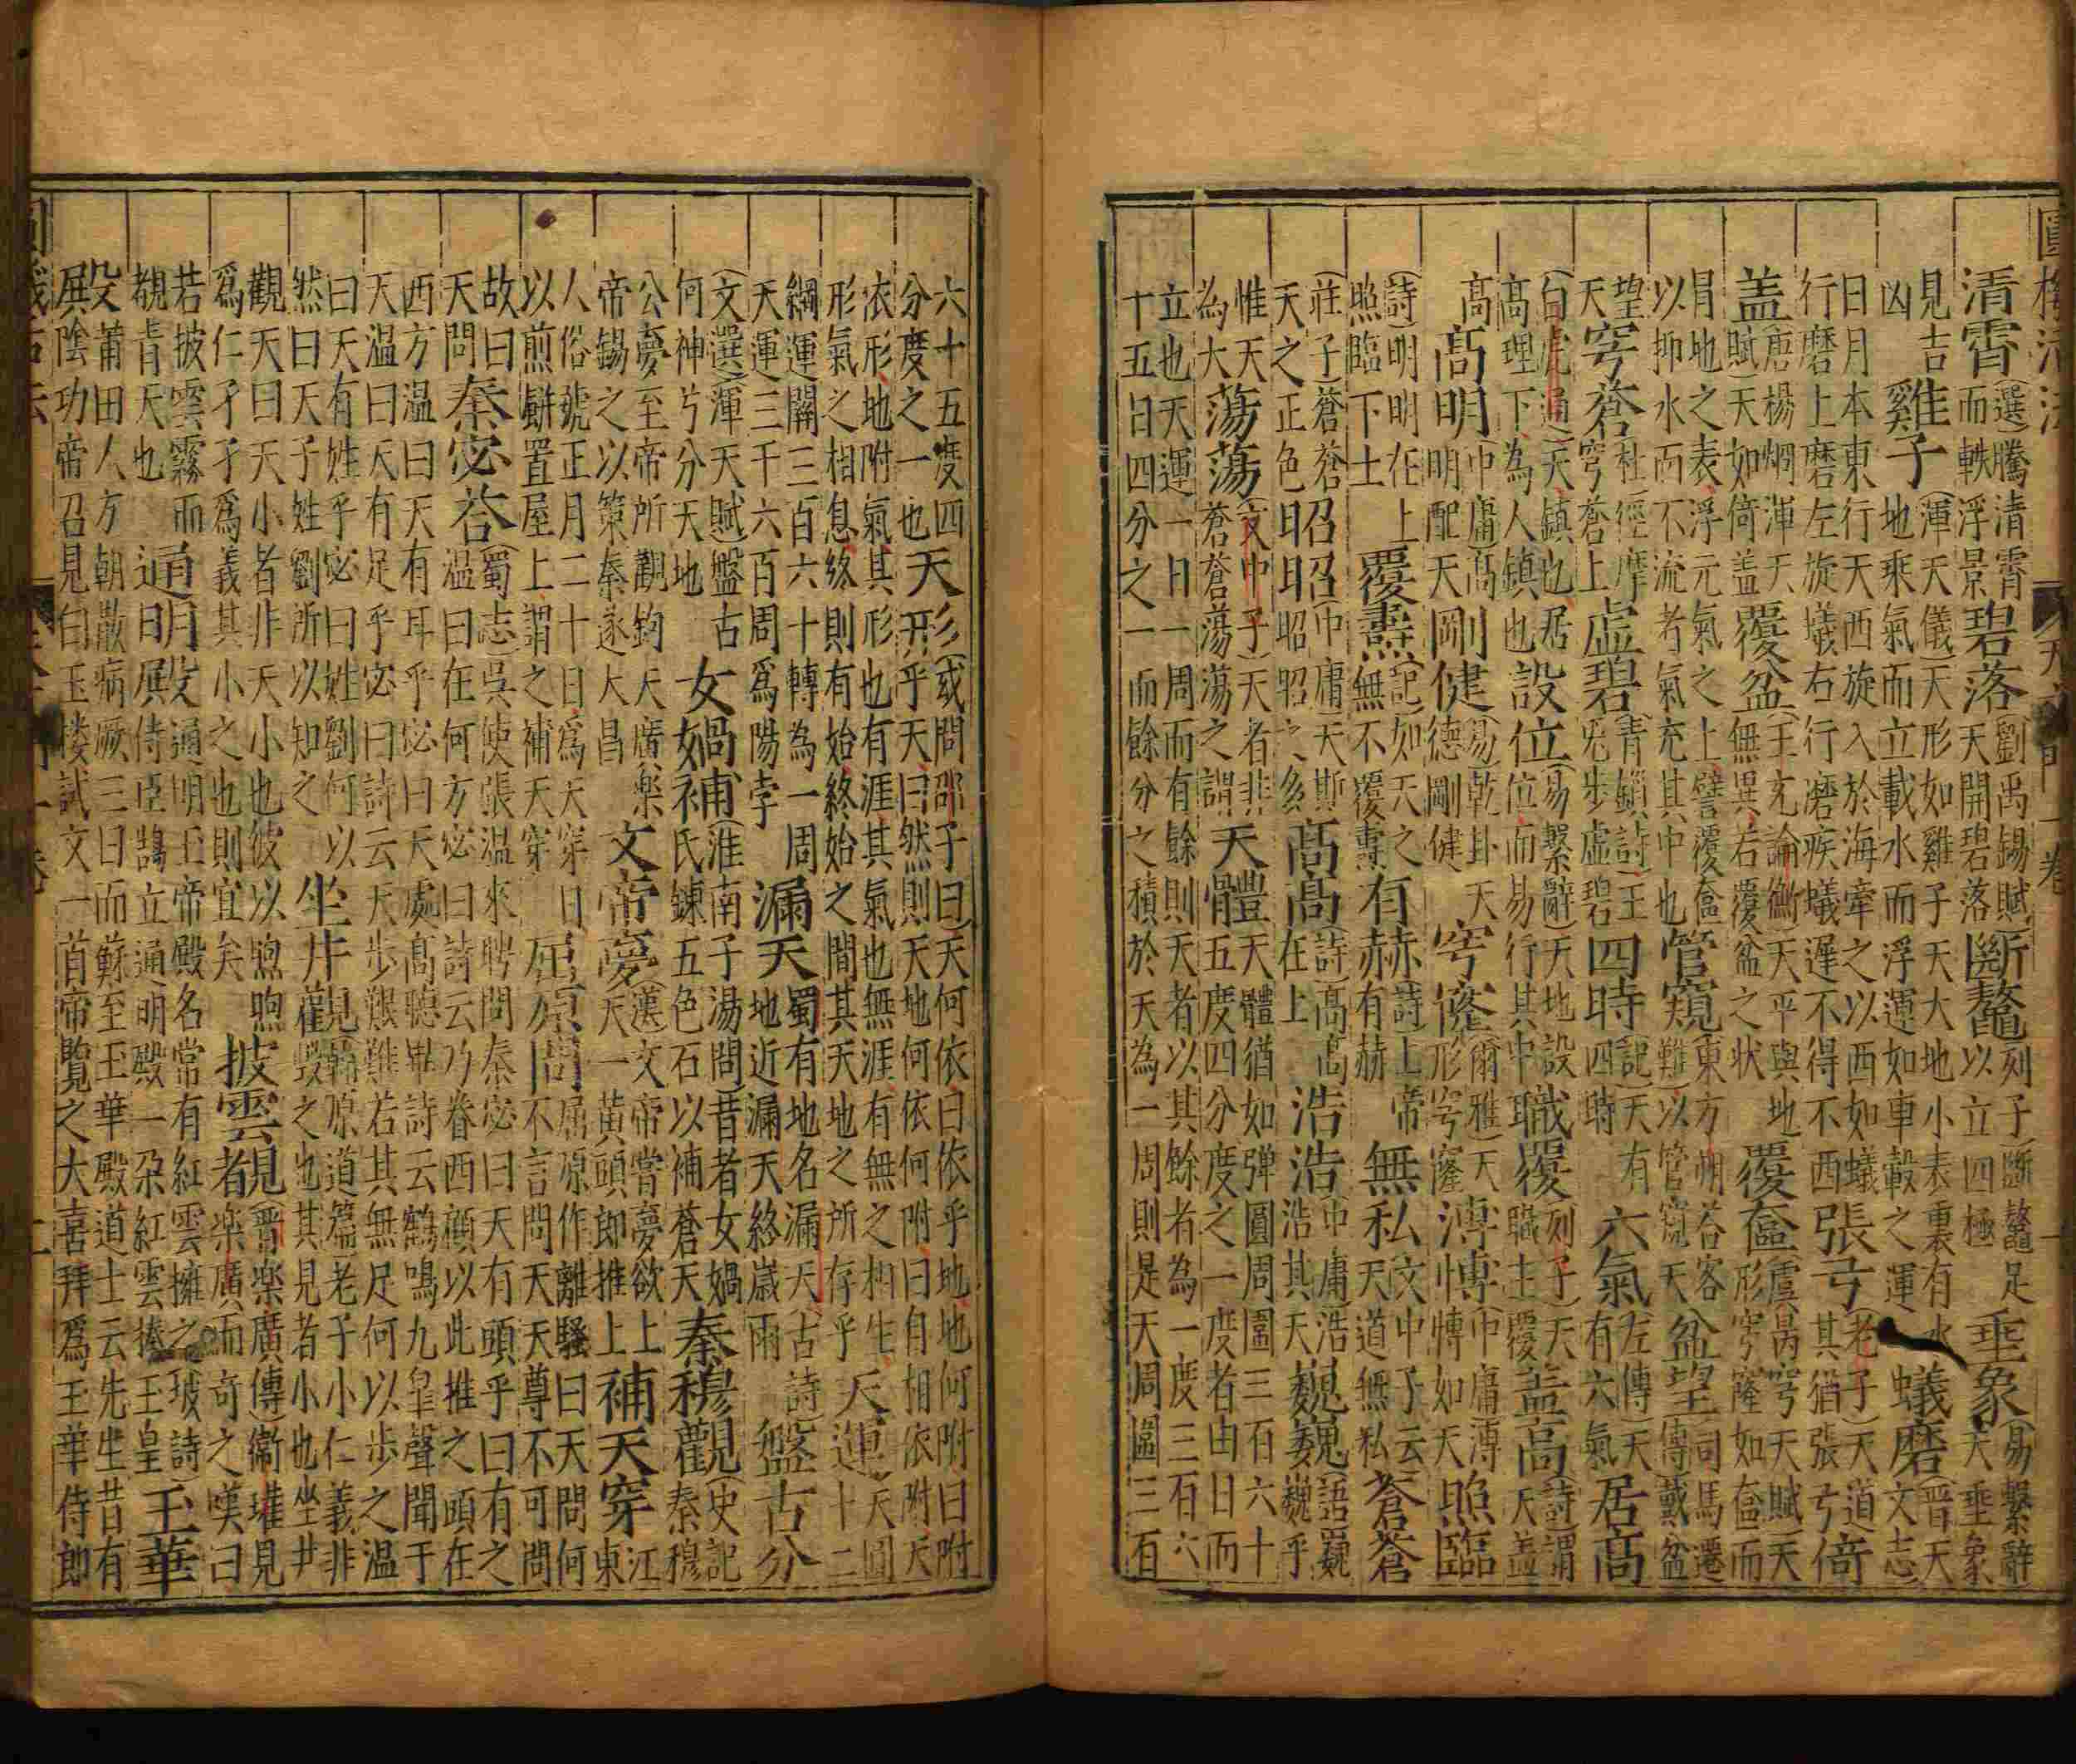 清霄(選)騰清霄而軼浮景 碧落(劉禹錫賦)天開碧落 斷鼇列子(斷鼇足以立四極 垂象(易繫辭天垂象
見吉凶 雞子(渾天儀)天形如雞子天大地小表裏有水地乘氣而立載水而浮運如車轂之運 蟻磨(晉天文志)
日月本東行天西旋入於海牽之以西如蟻行磨上磨左旋蟻右行磨疾蟻遲不得不西 張弓(老子)天道其猶張弓 倚
盖(唐楊烱渾天賦)天如倚盖 覆盆(王充論衡)天平與地無異若覆盆之状 覆奩(虞昺穹天賦)天形穹窿如奩而
冒地之表浮元氣之上譬覆奩以抑水而不流者氣充其中也 管窺東方朔荅客難)以管窺天 盆望(司馬遷傳)戴盆
望天 穹蒼杜)徑摩穹蒼上 虚碧(青鎖詩)王兕步虚碧 四時記)天有四時 六氣(左傳)天有六氣 居高
(白虎通)天鎮也居高理下為人鎮也 設位(易繫辭)天地設位而易行其中 職覆列子)天職主覆 盖高(詩)謂天盖
高 高明(中庸)高明配天 剛健(易)乾卦天德剛健 穹窿(爾雅)天形穹窿 溥慱(中庸)溥慱如天 照臨
(詩)明明在上照臨下土 覆燾(記)如天之無不覆燾 有赫詩)上帝有赫 無私文中子云天道無私 蒼蒼
(莊子)蒼蒼天之正色 昭昭(中庸)天斯昭昭之多 高高(詩)高高在上 浩浩(中庸)浩浩其天 巍巍語)巍巍乎
惟天為大 蕩蕩(文中子)天者非蒼蒼蕩蕩之謂 天體天體猶如弹圓周圍三百六十五度四分度之一度者由日而
立也天運一日一周而有餘則天者以其餘者為一度三百六十五日四分之一而餘分之積於天為一周則是天周圍三百
六十五度四分度之一也 天形(或問邵子曰)天何依曰依乎地地何附曰附乎天曰然則天地何依何附曰自相依附天
依形地附氣其形也有涯其氣也無涯有無之相生形氣之相息終則有始終始之間其天地之所存乎 天運天圓十二
綱運關三百六十轉為一周天運三千六百周爲陽孛 漏天蜀有地名漏天(古詩)地近漏天終歲雨 盤古分
(文選)(渾天賦)盤古何神兮分天地 女媧補(淮南子湯問)昔者女媧氏鍊五色石以補蒼天 秦穆觀(史記秦穆
公夢至帝所觀鈞天廣楽帝錫之以策秦遂大昌 文帝夢(漢)文帝嘗夢欲上天一黄頭郎推上 補天穿江東
人俗號正月二十日爲天穿日以煎餅置屋上謂之補天穿 屈原問屈原作離騷曰天問何不言問天天尊不可問
故曰天問 秦宓荅(蜀志)呉使張温來聘問秦宓曰天有頭乎曰有之温曰在何方宓曰詩云乃眷西顧以此推之頭在
西方温曰天有耳乎宓曰天處高聽卑詩云鶴鳴九皐聲聞于天温曰天有足乎宓曰詩云天步艱難若其無足何以步之温
曰天有姓乎宓曰姓劉何以然曰天子姓劉所以知之 坐井觀韓原道篇)老子小仁義非毀之也其見者小也坐井
觀天曰天小者非天小也彼以煦煦爲仁孑孑爲義其小之也則宜矣 披雲覩(晉楽廣傳)衞瓘見楽廣而竒之嘆曰
若披雲霧而覩青天也 通明殿通明玉帝殿名常有紅雲擁之坡詩)侍臣鵠立通明殿一朶紅雲捧玉皇 玉華
殿莆田人方朝散病厥三日而蘇至玉華殿道士云先生昔有展陰功帝召見白玉楼試文一首帝覽之大喜拜爲玉華侍郎